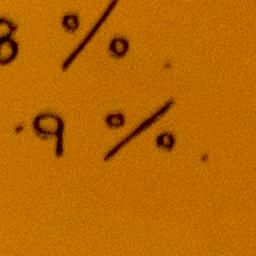 8%
.9%